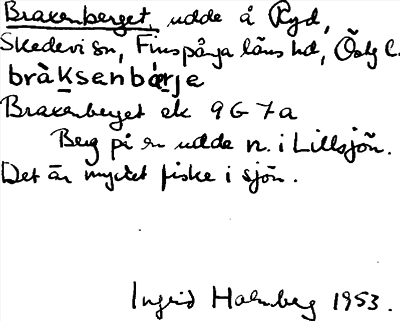 Braxenberget, udde å Ryd,
Skedevi sn, Finspånga läns hd, Östg l.
bràksenbärje
Braxenberget ek 9G7a
Berg på en udde n. i Lillsjön.
Det är mycket fiske i sjön.
Ingrid Holmberg 1953.